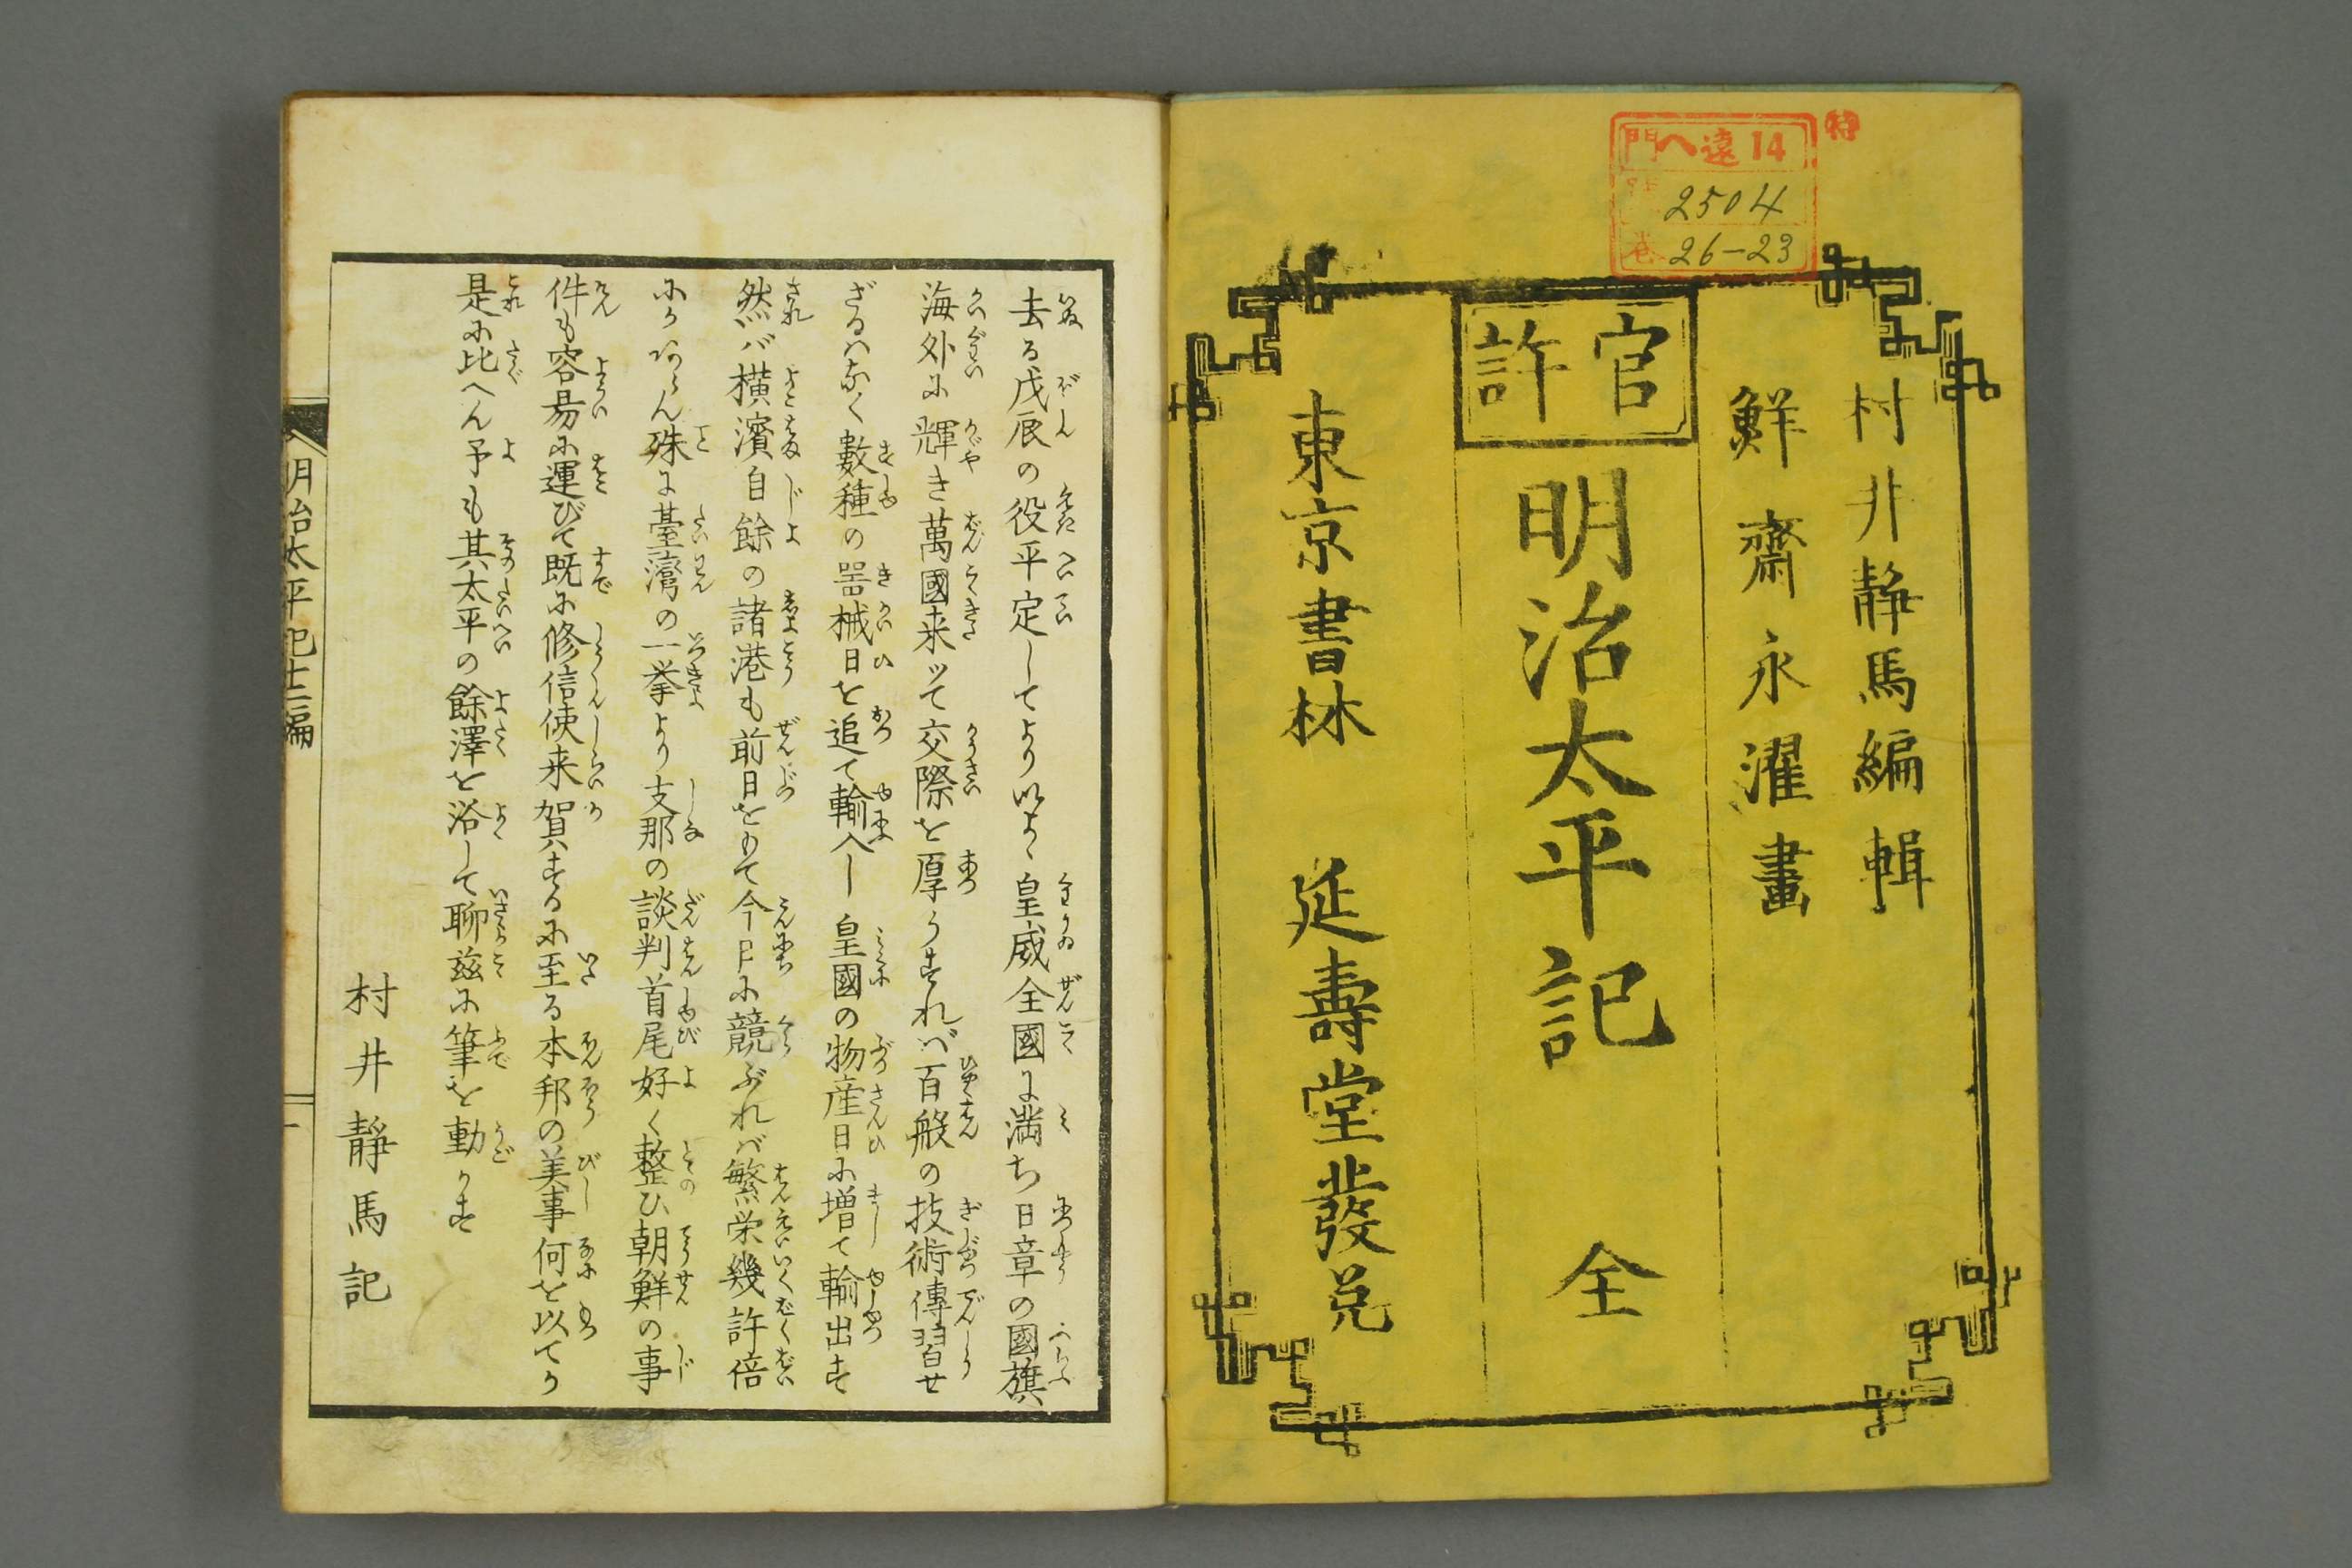 特
門 ヘ遠14
2504
巻 26-23
村井静馬編輯
鮮齋永濯畫
官許
明治太平記 全
東京書林 延壽堂發兌
去る戊辰の役平定してより以来皇威全國に満ち日章の國旗
海外に輝き萬國来ツて交際を厚うすれバ百般の技術傳習せ
ざるハなく數種の器械日を追て輸入し皇國の物産日に増て輸出す
然バ横濱自餘の諸港も前日をもて今日に競ぶれバ繁栄幾許倍
にかあらん殊に臺灣の一挙より支那の談判首尾好く整ひ朝鮮の事
件も容易に運びて既に修信使来賀するに至る本邦の美事何を以てか
是に比へん予も其太平の餘澤を浴して聊茲に筆を動かす
村井静馬記
明治太平記十二編
一